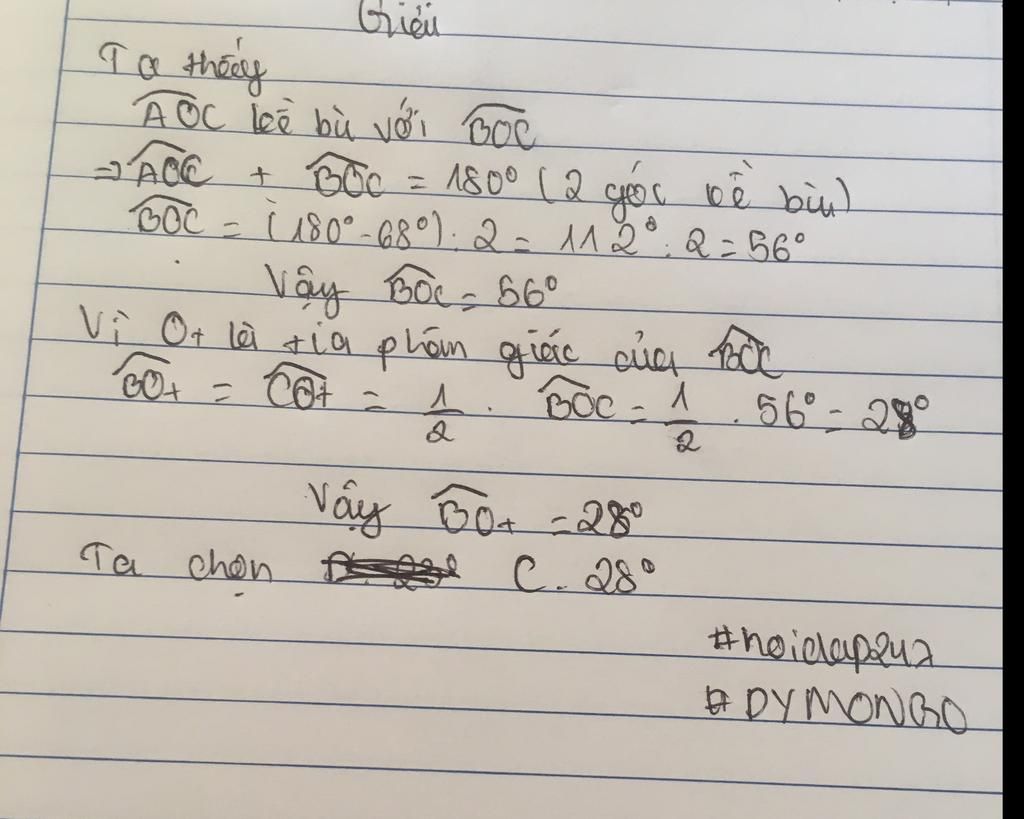 Giải
Ta thấy
AOC kề bù với BOC
=> AOC + BOC = 180° (2 góc kề bù)
BOC = (180° - 68°) : 2 = 112° : 2 = 56°
Vậy BOC = 56°
Vì Ot là tia phân giác của BOC
BOt = COt = 1/2 . BOC = 1/2 . 56° = 28°
Vậy BOt = 28°
Ta chọn C. 28°
#hoidap247
#DYMONGO